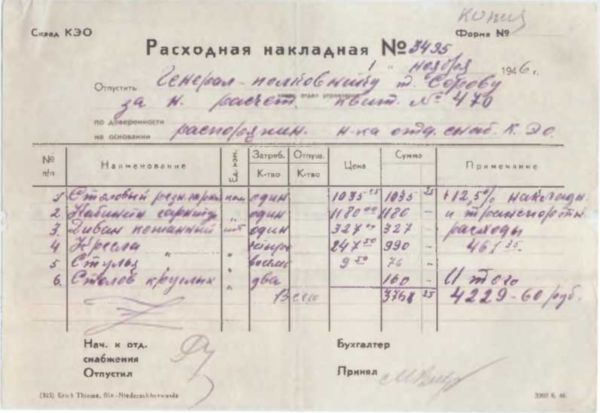 копия
Склад КЭО Форма №
Расходная накладная № 3495
" " ноября 1946 г.
Отпустить Генерал-полковнику т. Серову
за н. расчет. квит. № 470
по доверенности
на основании распоряжен. н-ка отд. снаб. К.Э.О.
№ п/п Наименование Ед. изм. Затреб. К-тво Отпущ. К-тво Цена Сумма Примечание
1 Столовый гарнитур один 1035 25 1035 25 +12,5% накладн.
2 Кабинетн гарнитур " один 1180 1180 – и транспортн.
3 Диван кожанный шт один 327 327 – расходы
4 Кресла " четыре 247 50 990 – 461 35.
5 Стулья " восемь 9 50 76 –
6. Столов круглых " два 160 – Итого
Всего 3768 25 4229-60 руб.
Нач. к отд. Бухгалтер
снабжения
Отпустил Принял